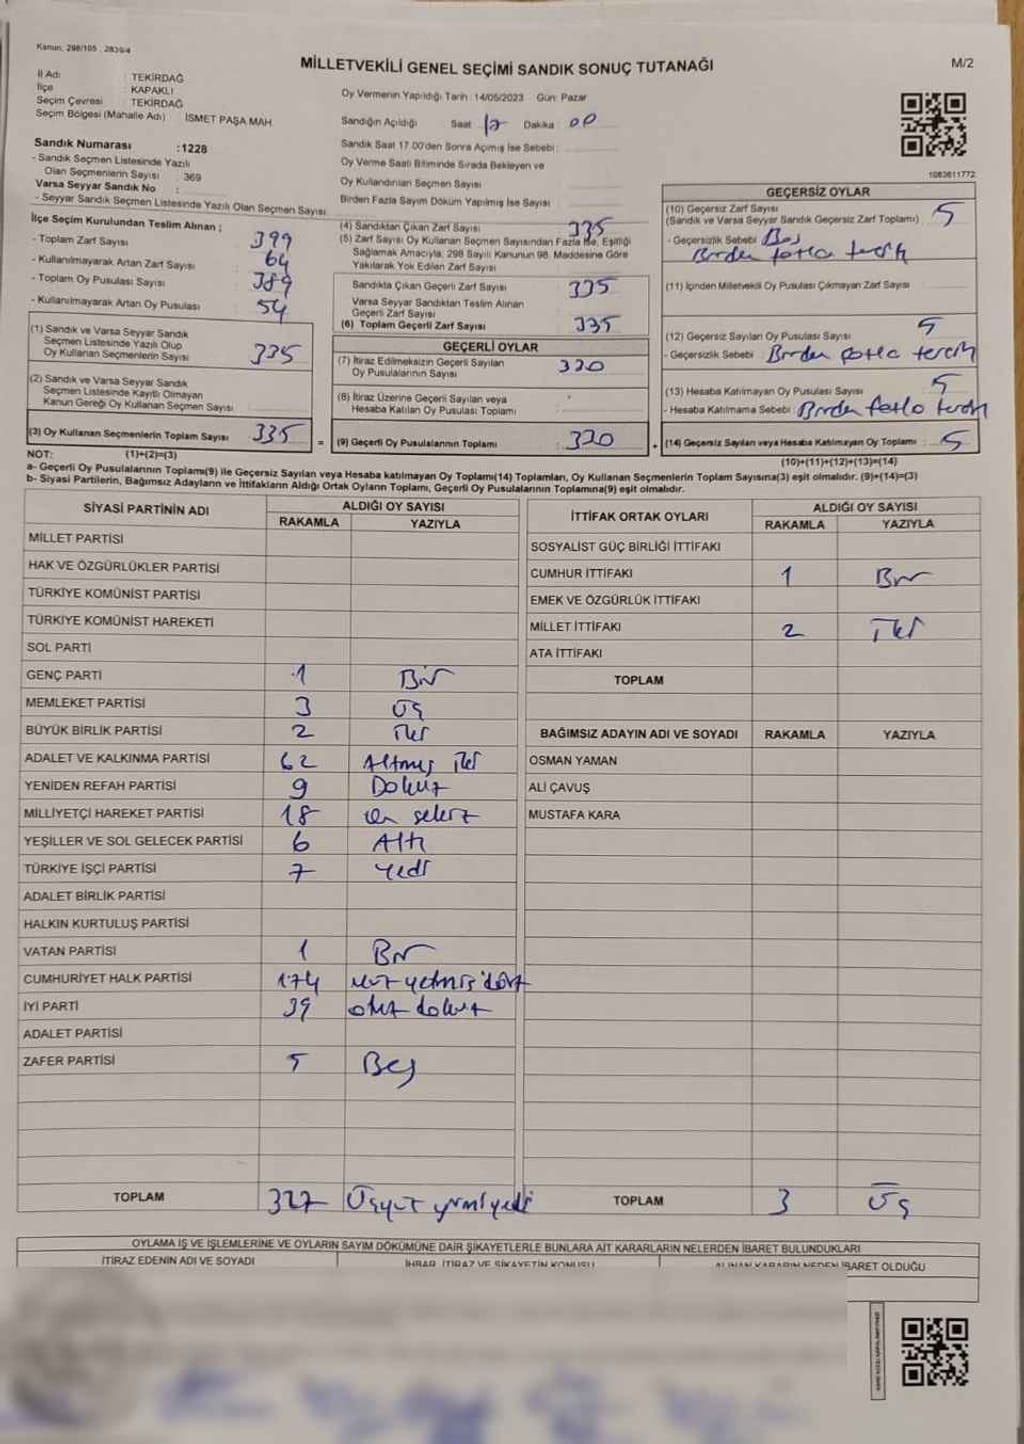 Kanun, 298/105 , 2839/4
MİLLETVEKİLİ GENEL SEÇİMİ SANDIK SONUÇ TUTANAĞI
M/2
İl Adı : TEKİRDAĞ
İlçe : KAPAKLI
Seçim Çevresi : TEKİRDAĞ
Seçim Bölgesi (Mahalle Adı) İSMET PAŞA MAH.
Oy Vermenin Yapıldığı Tarih :14/05/2023 Gün: Pazar
Sandığın Açıldığı Saat 17 Dakika 00
Sandık Saat 17.00'den Sonra Açılmış İse Sebebi:
Oy Verme Saati Bitiminde Sırada Bekleyen ve
Oy Kullandırılan Seçmen Sayısı
Birden Fazla Sayım Döküm Yapılmış İse Sayısı
Sandık Numarası :1228
- Sandık Seçmen Listesinde Yazılı
Olan Seçmenlerin Sayısı : 369
Varsa Seyyar Sandık No :
- Seyyar Sandık Seçmen Listesinde Yazılı Olan Seçmen Sayısı:
1083611772
İlçe Seçim Kurulundan Teslim Alınan ;
- Toplam Zarf Sayısı : 399
- Kullanılmayarak Artan Zarf Sayısı : 64
- Toplam Oy Pusulası Sayısı : 389
- Kullanılmayarak Artan Oy Pusulası : 54
(1) Sandık ve Varsa Seyyar Sandık
Seçmen Listesinde Yazılı Olup
Oy Kullanan Seçmenlerin Sayısı : 335
(2) Sandık ve Varsa Seyyar Sandık
Seçmen Listesinde Kayıtlı Olmayan
Kanun Gereği Oy Kullanan Seçmen Sayısı :
(3) Oy Kullanan Seçmenlerin Toplam Sayısı : 335
(4) Sandıktan Çıkan Zarf Sayısı : 335
(5) Zarf Sayısı Oy Kullanan Seçmen Sayısından Fazla İse, Eşitliği
Sağlamak Amacıyla; 298 Sayılı Kanunun 98. Maddesine Göre
Yakılarak Yok Edilen Zarf Sayısı :
Sandıkta Çıkan Geçerli Zarf Sayısı : 335
Varsa Seyyar Sandıktan Teslim Alınan
Geçerli Zarf Sayısı :
(6) Toplam Geçerli Zarf Sayısı : 335
GEÇERLİ OYLAR
(7) İtiraz Edilmeksizin Geçerli Sayılan
Oy Pusulalarının Sayısı : 320
(8) İtiraz Üzerine Geçerli Sayılan veya
Hesaba Katılan Oy Pusulası Toplamı :
= (9) Geçerli Oy Pusulalarının Toplamı : 320
GEÇERSİZ OYLAR
(10) Geçersiz Zarf Sayısı : 5
(Sandık ve Varsa Seyyar Sandık Geçersiz Zarf Toplamı)
- Geçersizlik Sebebi : Boş
Birden fazla tercih
(11) İçinden Milletvekili Oy Pusulası Çıkmayan Zarf Sayısı :
(12) Geçersiz Sayılan Oy Pusulası Sayısı : 5
- Geçersizlik Sebebi : Birden fazla tercih
(13) Hesaba Katılmayan Oy Pusulası Sayısı : 5
- Hesaba Katılmama Sebebi : Birden fazla tercih
(14) Geçersiz Sayılan veya Hesaba Katılmayan Oy Toplamı : 5
NOT: (1)+(2)=(3)
(10)+(11)+(12)+(13)=(14)
a- Geçerli Oy Pusulalarının Toplamı(9) ile Geçersiz Sayılan veya Hesaba katılmayan Oy Toplamı(14) Toplamları, Oy Kullanan Seçmenlerin Toplam Sayısına(3) eşit olmalıdır. (9)+(14)=(3)
b- Siyasi Partilerin, Bağımsız Adayların ve İttifakların Aldığı Ortak Oyların Toplamı, Geçerli Oy Pusulalarının Toplamına(9) eşit olmalıdır.
SİYASİ PARTİNİN ADI ALDIĞI OY SAYISI
RAKAMLA YAZIYLA
MİLLET PARTİSİ
HAK VE ÖZGÜRLÜKLER PARTİSİ
TÜRKİYE KOMÜNİST PARTİSİ
TÜRKİYE KOMÜNİST HAREKETİ
SOL PARTİ
GENÇ PARTİ 1 Bir
MEMLEKET PARTİSİ 3 Üç
BÜYÜK BİRLİK PARTİSİ 2 iki
ADALET VE KALKINMA PARTİSİ 62 Altmış iki
YENİDEN REFAH PARTİSİ 9 Dokuz
MİLLİYETÇİ HAREKET PARTİSİ 18 on sekiz
YEŞİLLER VE SOL GELECEK PARTİSİ 6 Altı
TÜRKİYE İŞÇİ PARTİSİ 7 yedi
ADALET BİRLİK PARTİSİ
HALKIN KURTULUŞ PARTİSİ
VATAN PARTİSİ 1 Bir
CUMHURİYET HALK PARTİSİ 174 yüz yetmiş dört
İYİ PARTİ 39 otuz dokuz
ADALET PARTİSİ
ZAFER PARTİSİ 5 Beş
TOPLAM 327 Üçyüz yirmi yedi
İTTİFAK ORTAK OYLARI ALDIĞI OY SAYISI
RAKAMLA YAZIYLA
SOSYALİST GÜÇ BİRLİĞİ İTTİFAKI
CUMHUR İTTİFAKI 1 Bir
EMEK VE ÖZGÜRLÜK İTTİFAKI
MİLLET İTTİFAKI 2 İki
ATA İTTİFAKI
TOPLAM
BAĞIMSIZ ADAYIN ADI VE SOYADI RAKAMLA YAZIYLA
OSMAN YAMAN
ALİ ÇAVUŞ
MUSTAFA KARA
TOPLAM 3 Üç
OYLAMA İŞ VE İŞLEMLERİNE VE OYLARIN SAYIM DÖKÜMÜNE DAİR ŞİKAYETLERLE BUNLARA AİT KARARLARIN NELERDEN İBARET BULUNDUKLARI
İTİRAZ EDENİN ADI VE SOYADI İHBAR, İTİRAZ VE ŞİKAYETİN KONUSU ALINAN KARARIN NEDEN İBARET OLDUĞU